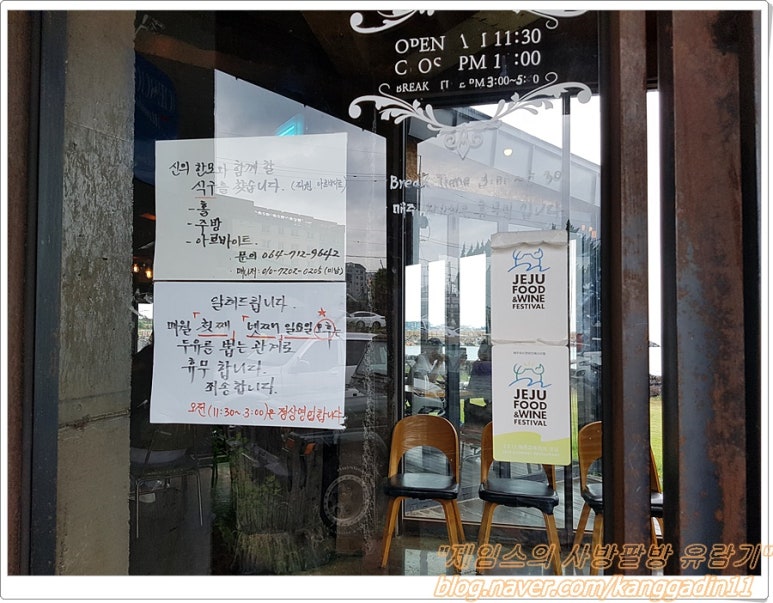 OPEN 11:30
PM
BREAK PM 3:00~5:
Break Time
신의 한모와 함께 할
식구를 찾습니다.
- 홀
- 주방
- 아르바이트.
문의 064-712-9642
알려드립니다.
매월 첫째, 넷째 일요일 오후는
두유를 뽑는 관계로
휴무 합니다.
죄송합니다.
오전 (11:30~3:00)은 정상영업합니다.
JEJU
FOOD
&WINE
FESTIVAL
JEJU
FOOD
&WINE
FESTIVAL
"제임스의 사방팔방 유람기"
blog.naver.com/kanggadin11